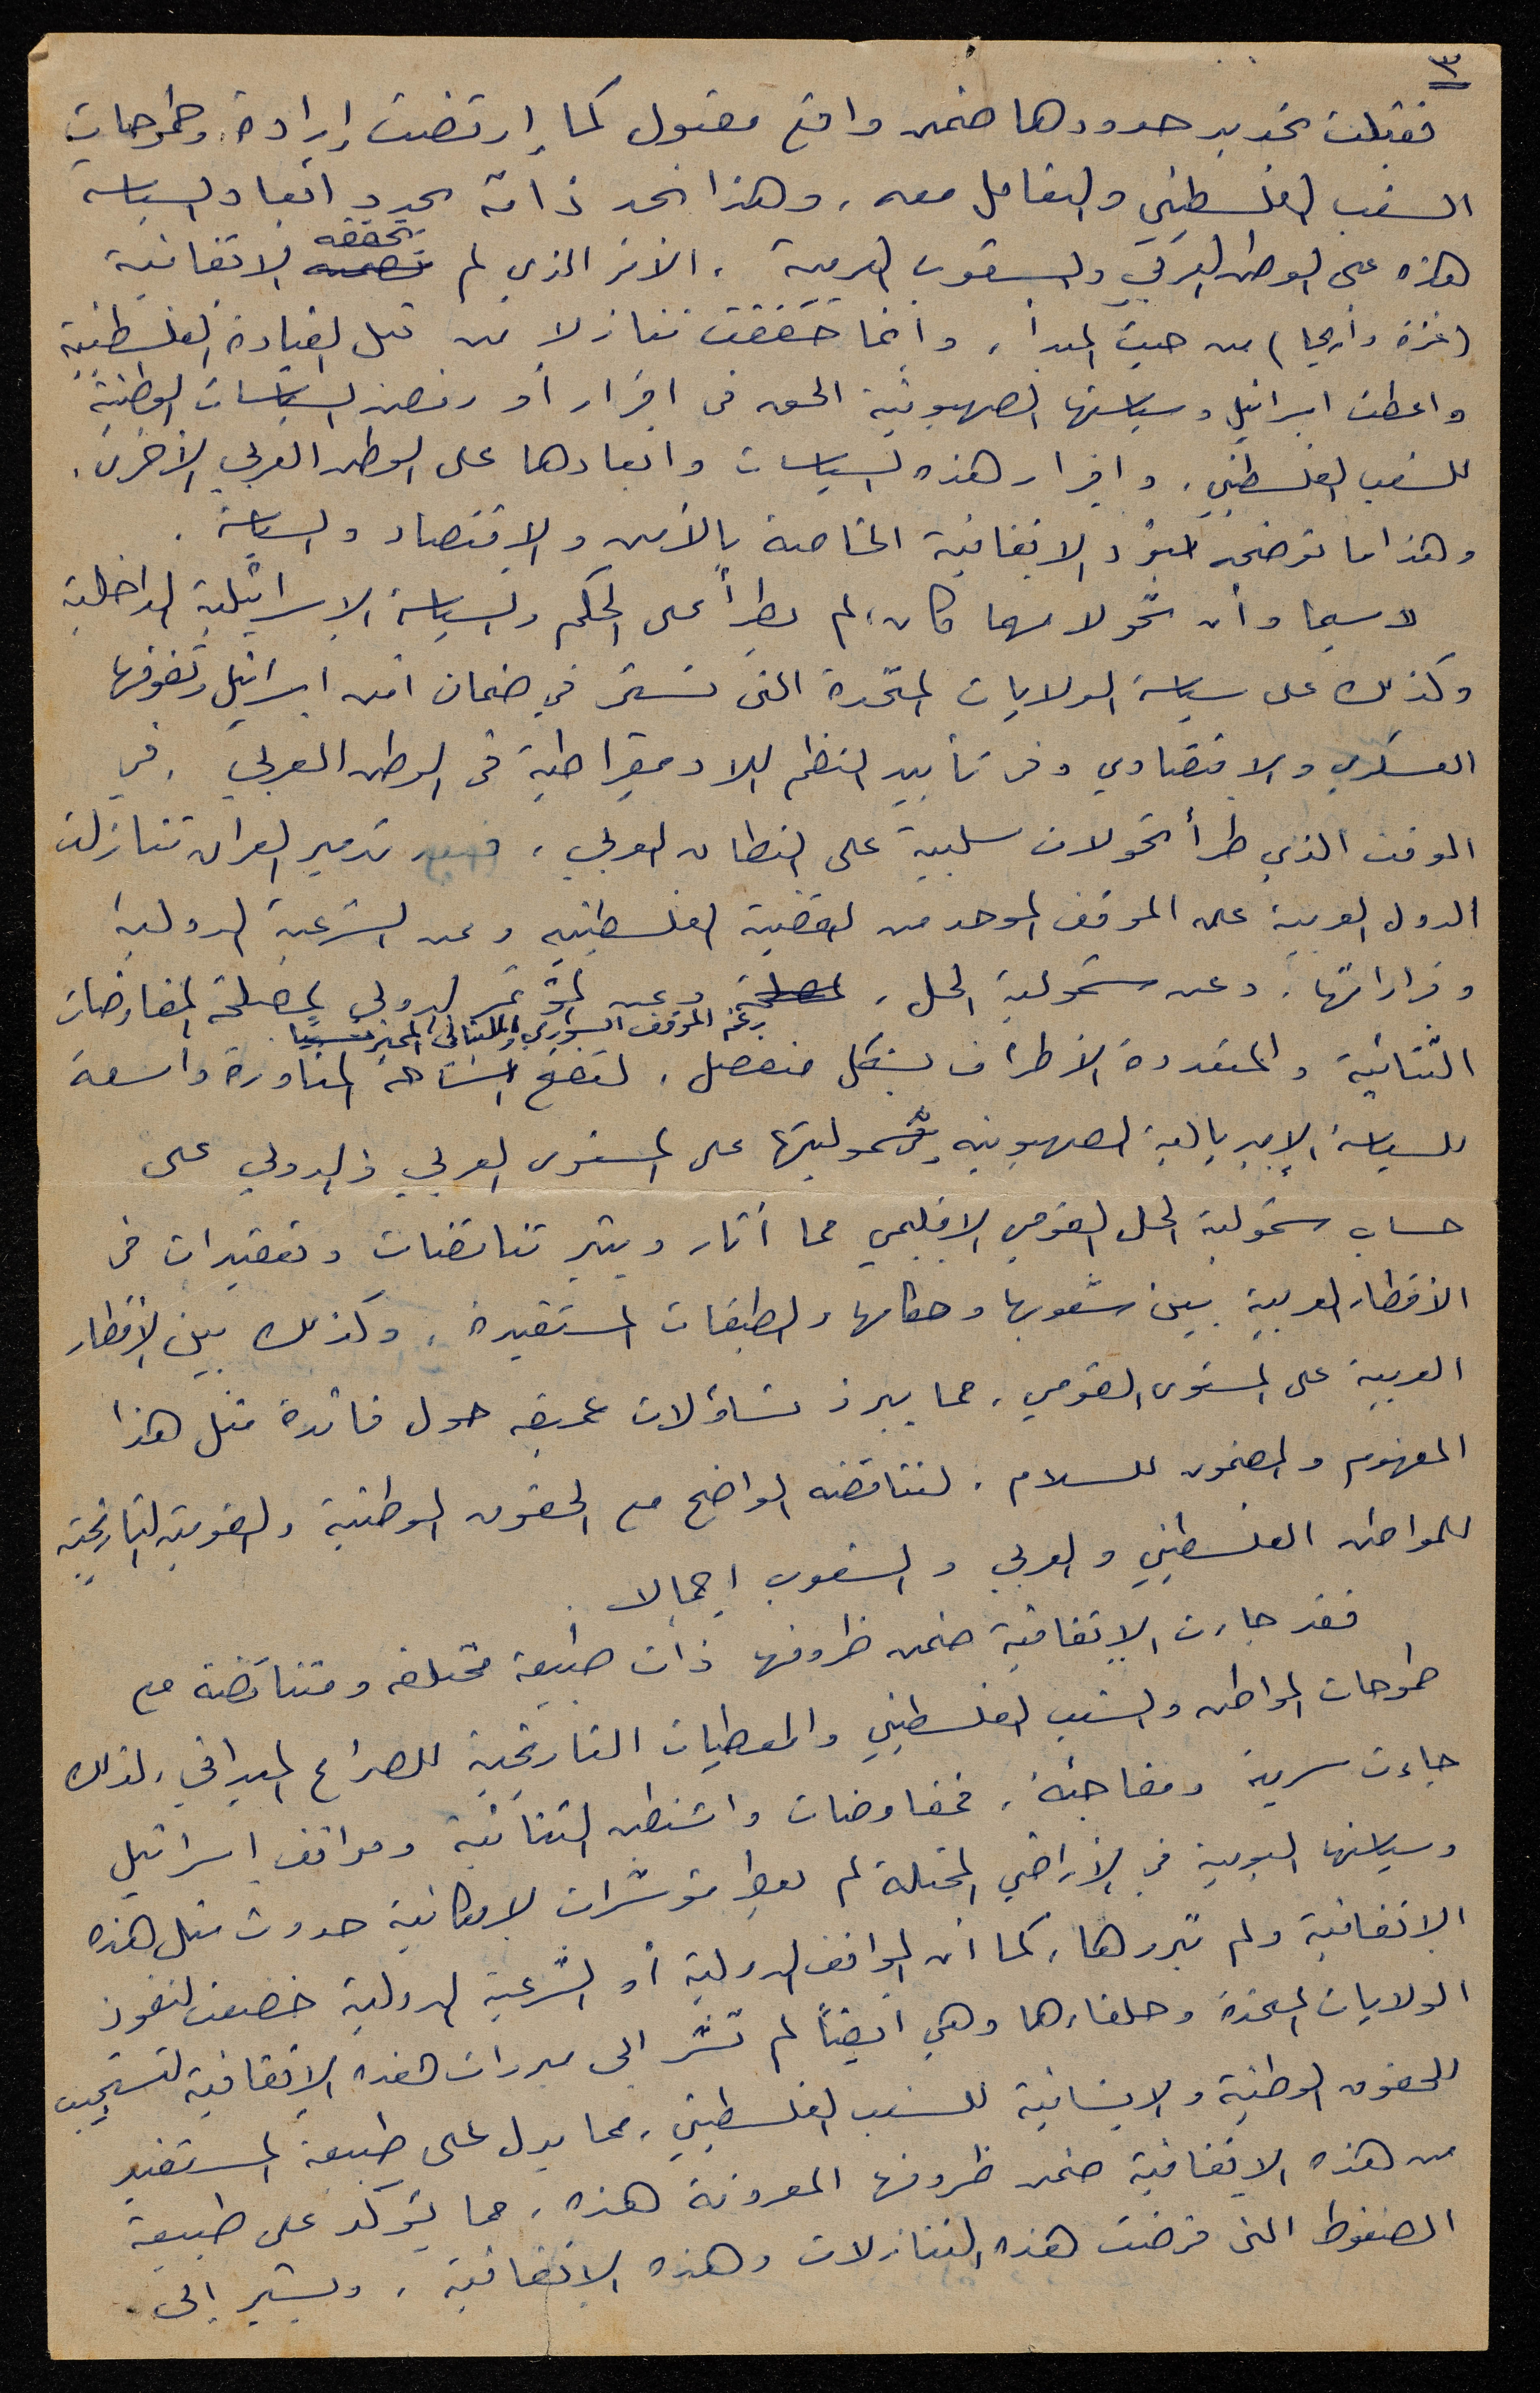 ٣
فقبلت تحديد حدودها ضمن واقع مقبول كما إرتضت إرادة وطموحات
الشعب الفلسطيني والتعامل معه، وهذا بحد ذاته يحدد ابعاد السياسة
هذه على الوطن العربي والشعوب العربية، الأمر الذي لم تحققه الاتفاقية
(غزة وأريحا) من حيث المبدأ، وانما حققت تنازلا من قبل القيادة الفلسطينية
واعطت اسرائيل وسياستها الصهيونية الحق في اقرار أو رفض السياسات الوطنية
للشعب الفلسطيني، واقرار هذه السياسات وابعادها على الوطن العربي الأخرى.
وهذا ما توضحه بنود الاتفاقية الخاصة بالأمن والاقتصاد والسياسة.
لا سيما وأن تحولا مهما كان، لم يطرأ على الحكم والسياسة الاسرائيلية الداخلية
وكذلك على سياسة الولايات المتحدة التي تستمر في ضمان امن اسرائيل وتفوقها
العسكري والاقتصادي وفي تأييد النظم اللاديمقراطية في الوطن العربي. في
الوقت الذي طرأ تحولات سلبية على النظام العربي، فبعد تدمير العراق تنازلت
الدول العربية على الموقف الموحد من القضية الفلسطينية وعن الشرعية الدولية
وقراراتها. وعن شمولية الحل، لمصلحة وعن المؤتمر الدولي لمصلحة المفاوضات
رغم الموقف السوري واللبناني المميز نسبيا
الثنائية والمتعددة الأطراف بشكل منفصل. لتصبح الساحة المناورة واسعة
للسياسة الإمبريالية الصهيونية وشموليتها على المستوى العربي والدولي على
حساب شمولية الحل القومي الاقليمي مما أثار ويثير تناقضات وتعقيدات في
الأقطار العربية بين شعوبها وحكامها والطبقات المستفيدة، وكذلك بين الأقطار
العربية على المستوى القومي، مما يبرز تساؤلات عميقه حول فائدة مثل هذا
المفهوم والمضمون للسلام. لتناقضه الواضح مع الحقوق الوطنية والقومية التاريخية
للمواطن الفلسطيني والعربي والشعوب اجمالا.
فقد جاءت الاتفاقية ضمن ظروفها ذات طبيعة مختلفه ومتناقضة مع
طموحات المواطن والشعب الفلسطيني والمعطيات التاريخية للصراع الميداني، لذلك
جاءت سرية ومفاجئة. فمفاوضات واشنطن الثنائية ومواقف إسرائيل
وسياستها اليومية في الأراضي المحتلة لم تعط مؤشرات لإمكانية حدوث مثل هذه
الاتفاقية ولم تبررها، كما ان المواقف الدولية أو الشرعية الدولية خضعت لنفوذ
الولايات المتحدة وحلفاءها وهي ايضاً لم تشر الى مبررات هذه الاتفاقية لتستجيب
للحقوق الوطنية والانسانية للشعب الفلسطيني، مما يدل على طبيعة المستفيد
من هذه الاتفاقية ضمن ظروفها المعروفة هذه، مما يؤكد على طبيعة
الضغوط التي فرضت هذه التنازلات وهذه الاتفاقية، ويشير الى